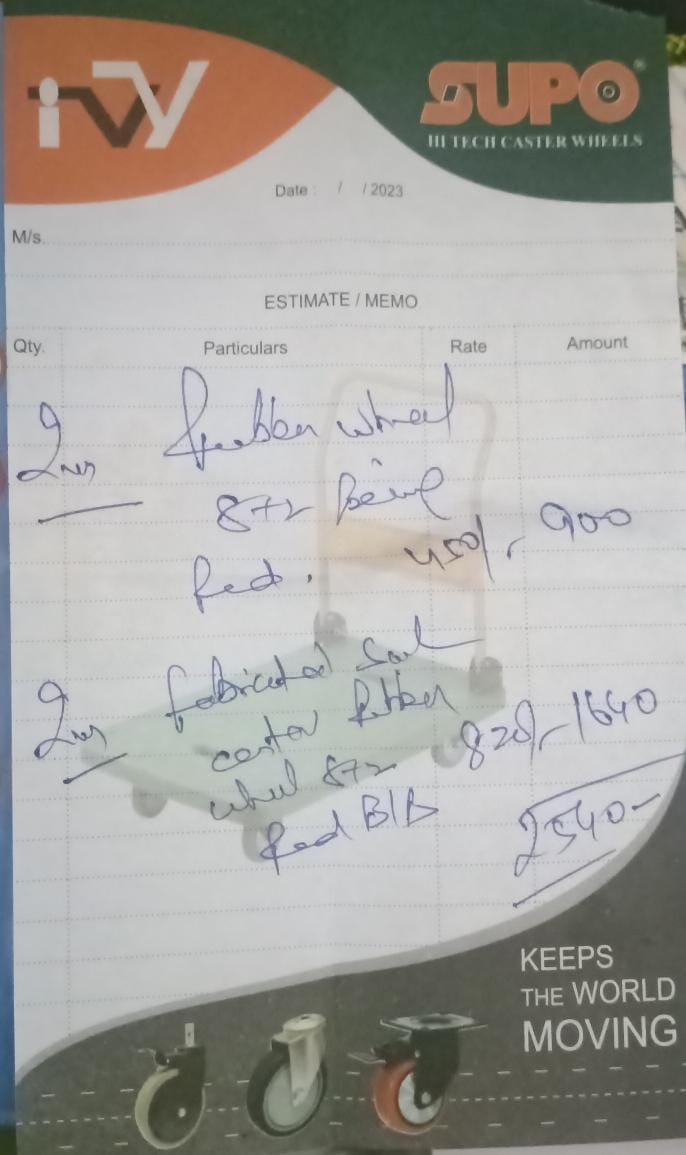 ivy
SUPO®
HI TECH CASTER WHEELS
Date : / / 2023
M/s.
ESTIMATE / MEMO
Qty. Particulars Rate Amount
2 Rubber wheel
872
Red. 450/- 900
2 fabricated
castor Rubber
wheel 872 820/- 1640
Red B/B
2540-
KEEPS
THE WORLD
MOVING